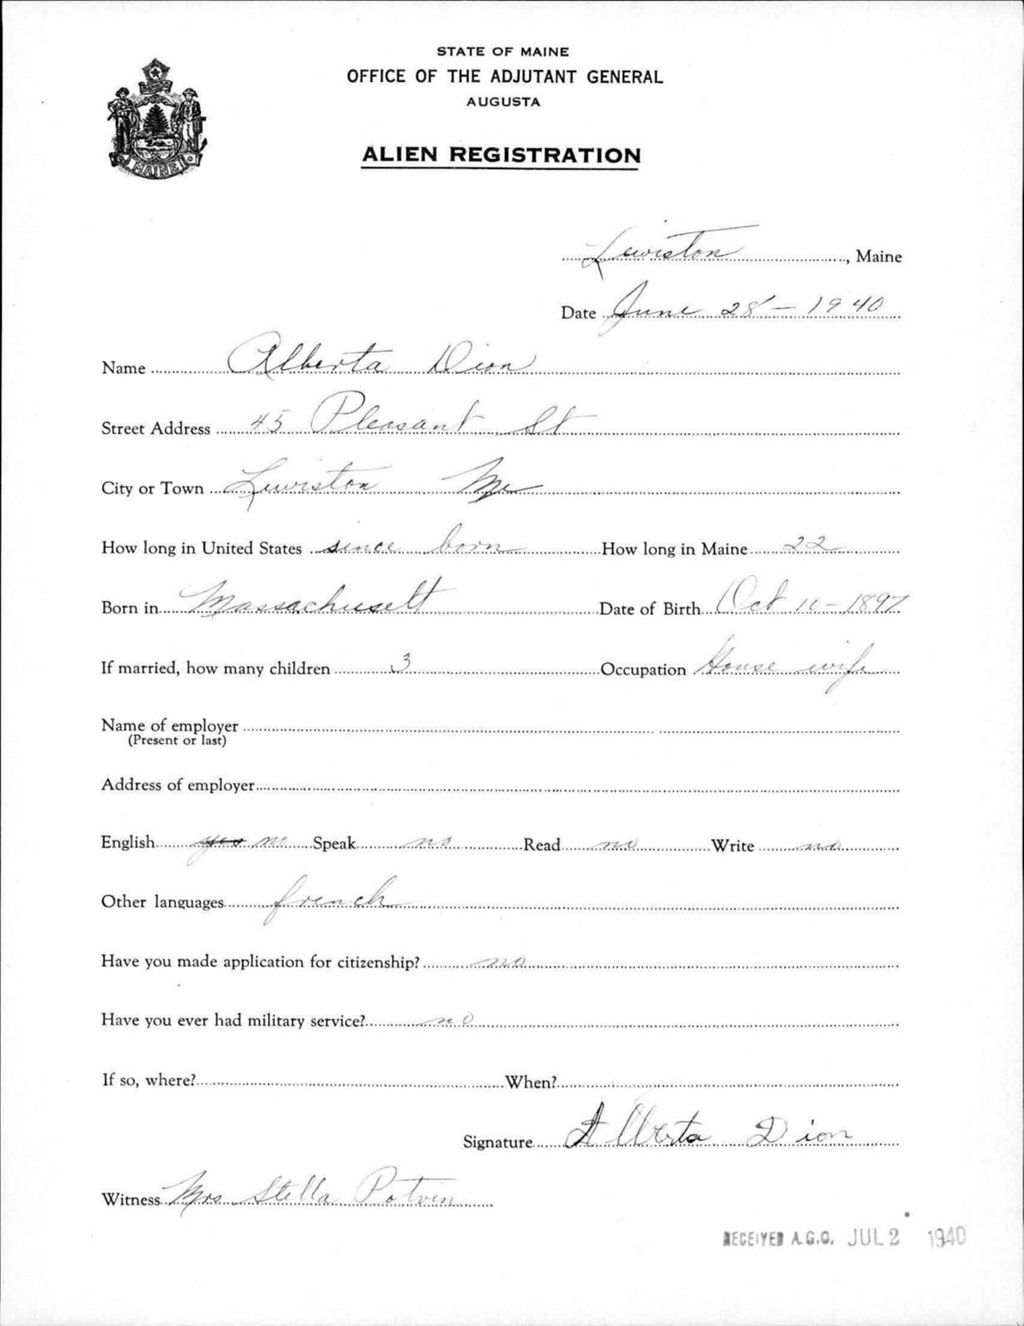 STATE OF MAINE
OFFICE OF THE ADJUTANT GENERAL
AUGUSTA
ALIEN REGISTRATION
MAINE
Lewiston, Maine
Date June 28 - 1940
Name Alberta Dion
Street Address 45 Pleasant St
City or Town Lewiston Me
How long in United States since born How long in Maine 22
Born in Massachusett Date of Birth Oct 10 - 1897
If married, how many children 3 Occupation House wife
Name of employer
(Present or last)
Address of employer
English yes no Speak no Read no Write no
Other languages french
Have you made application for citizenship? no
Have you ever had military service? no
If so, where? When?
Signature Alberta Dion
Witness Mrs Stella Potvin
RECEIVED A.G.O. JUL 2 1940